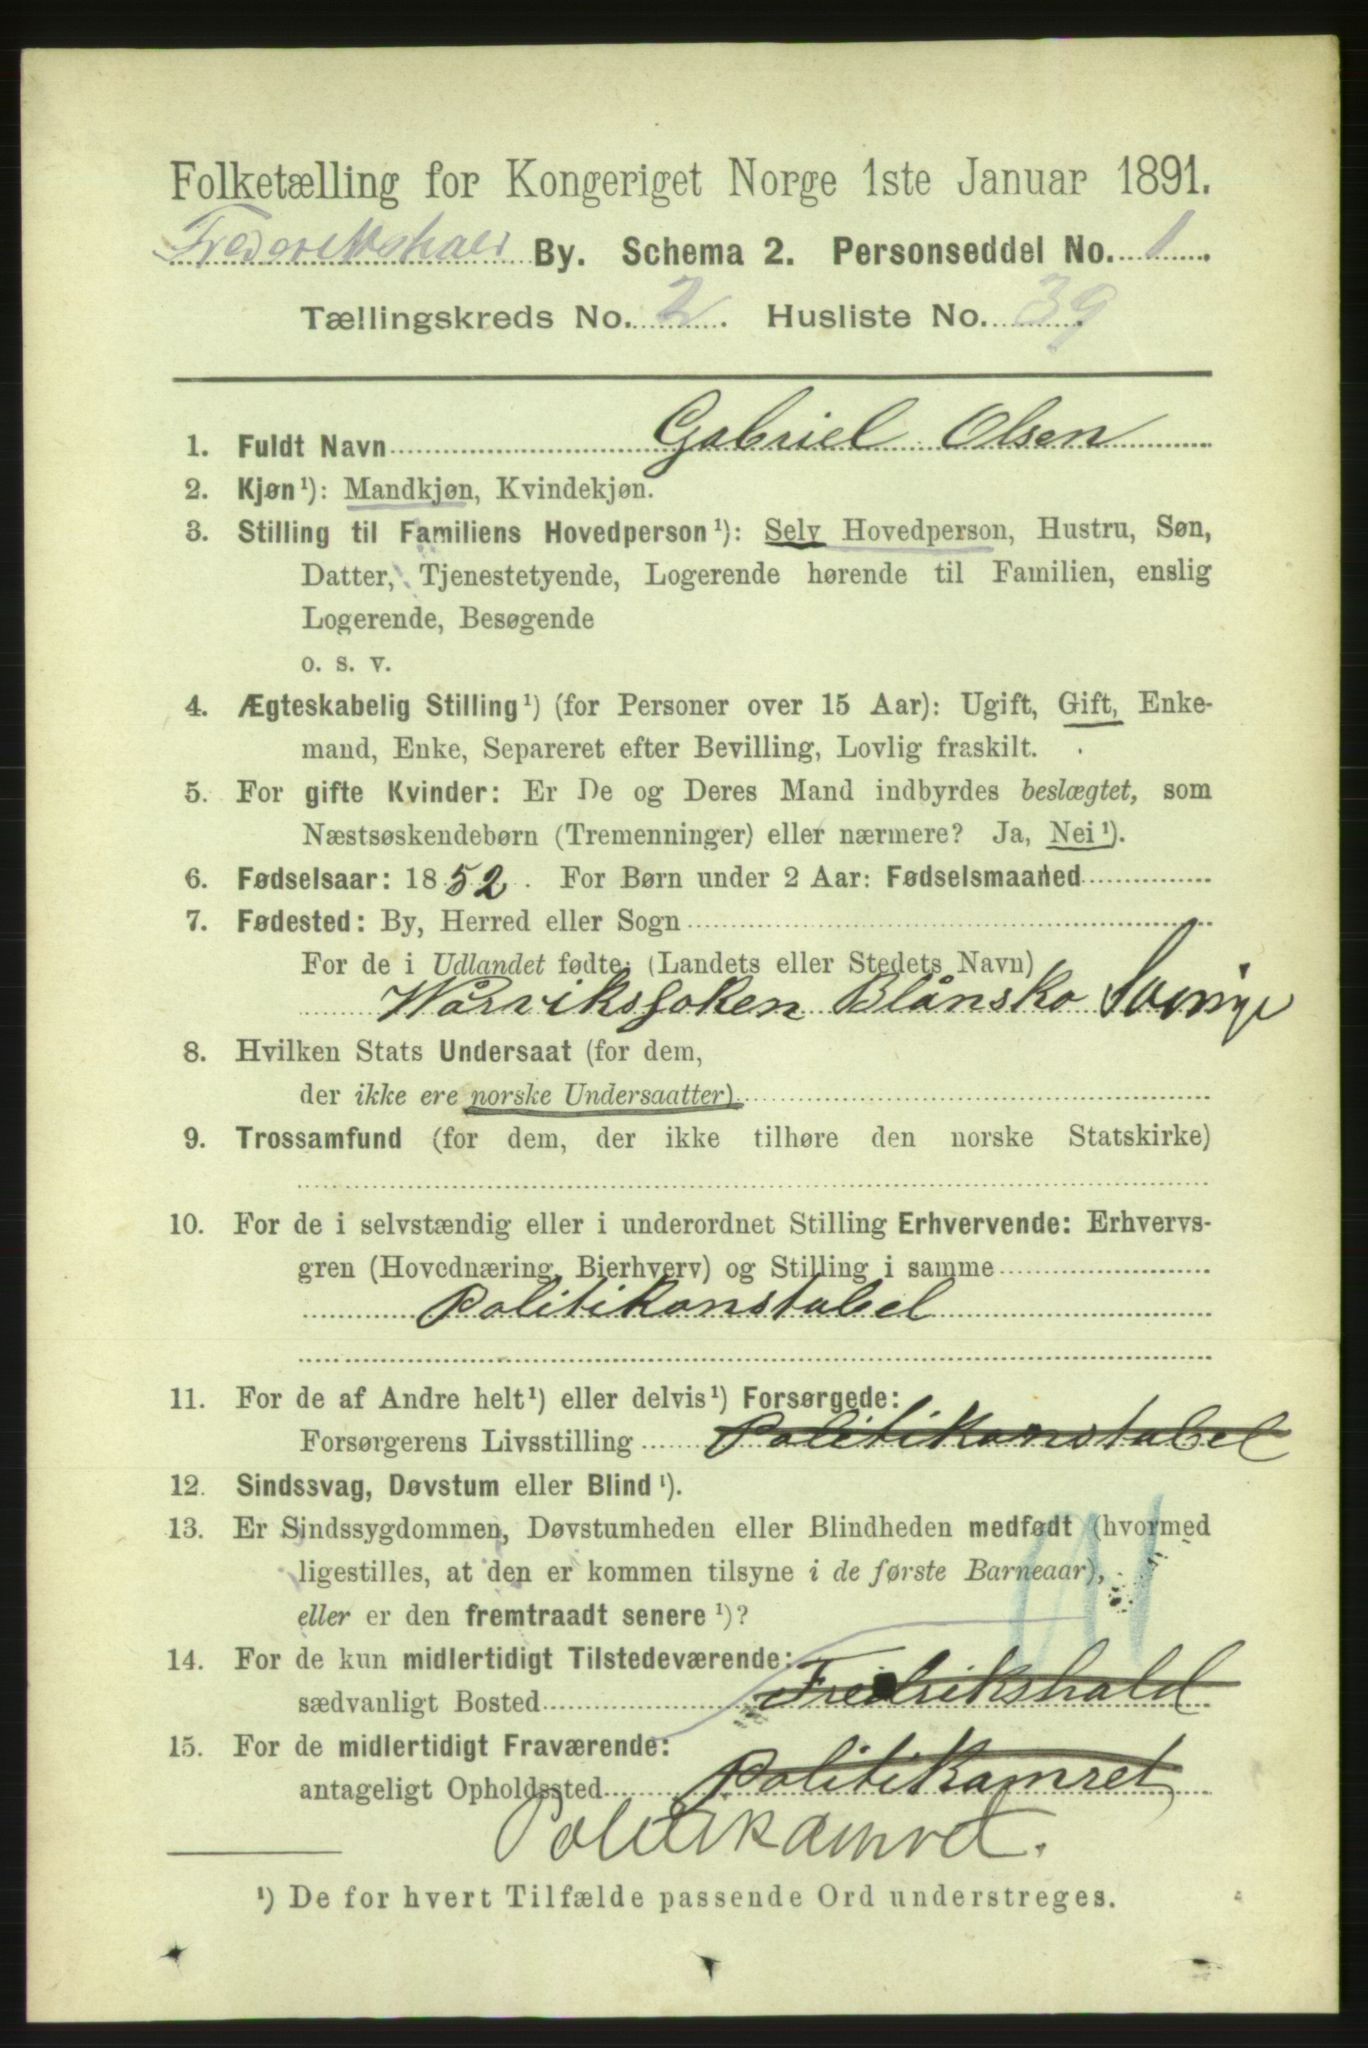 Folketælling for Kongeriget Norge 1ste Januar 1891.
Frederikshald By. Schema 2. Personseddel No. 1.
Tællingskreds No. 2. Husliste No. 39.
1. Fuldt Navn Gabriel Olsen
2. Kjøn¹): Mandkjøn, Kvindekjøn.
3. Stilling til Familiens Hovedperson¹): Selv Hovedperson, Hustru, Søn,
Datter, Tjenestetyende, Logerende hørende til Familien, enslig
Logerende, Besøgende
o. s. v.
4. Ægteskabelig Stilling¹) (for Personer over 15 Aar): Ugift, Gift, Enke-
mand, Enke, Separeret efter Bevilling, Lovlig fraskilt.
5. For gifte Kvinder: Er De og Deres Mand indbyrdes beslægtet, som
Næstsøskendebørn (Tremenninger) eller nærmere? Ja, Nei¹).
6. Fødselsaar: 1852. For Børn under 2 Aar: Fødselsmaaned
7. Fødested: By, Herred eller Sogn
For de i Udlandet fødte: (Landets eller Stedets Navn)
Wårvikssoken Blånsko Sverige
8. Hvilken Stats Undersaat (for dem,
der ikke ere norske Undersaatter)
9. Trossamfund (for dem, der ikke tilhøre den norske Statskirke)
10. For de i selvstændig eller i underordnet Stilling Erhvervende: Erhvervs-
gren (Hovednæring, Bierhverv) og Stilling i samme
Politikonstabel
11. For de af Andre helt¹) eller delvis¹) Forsørgede:
Forsørgerens Livsstilling Politikonstabel
12. Sindssvag, Døvstum eller Blind¹).
13. Er Sindssygdommen, Døvstumheden eller Blindheden medfødt (hvormed
ligestilles, at den er kommen tilsyne i de første Barneaar),
eller er den fremtraadt senere¹)?
14. For de kun midlertidigt Tilstedeværende:
sædvanligt Bosted Fredrikshald
15. For de midlertidigt Fraværende:
antageligt Opholdssted Politikamret
Politikamret.
¹) De for hvert Tilfælde passende Ord understreges.